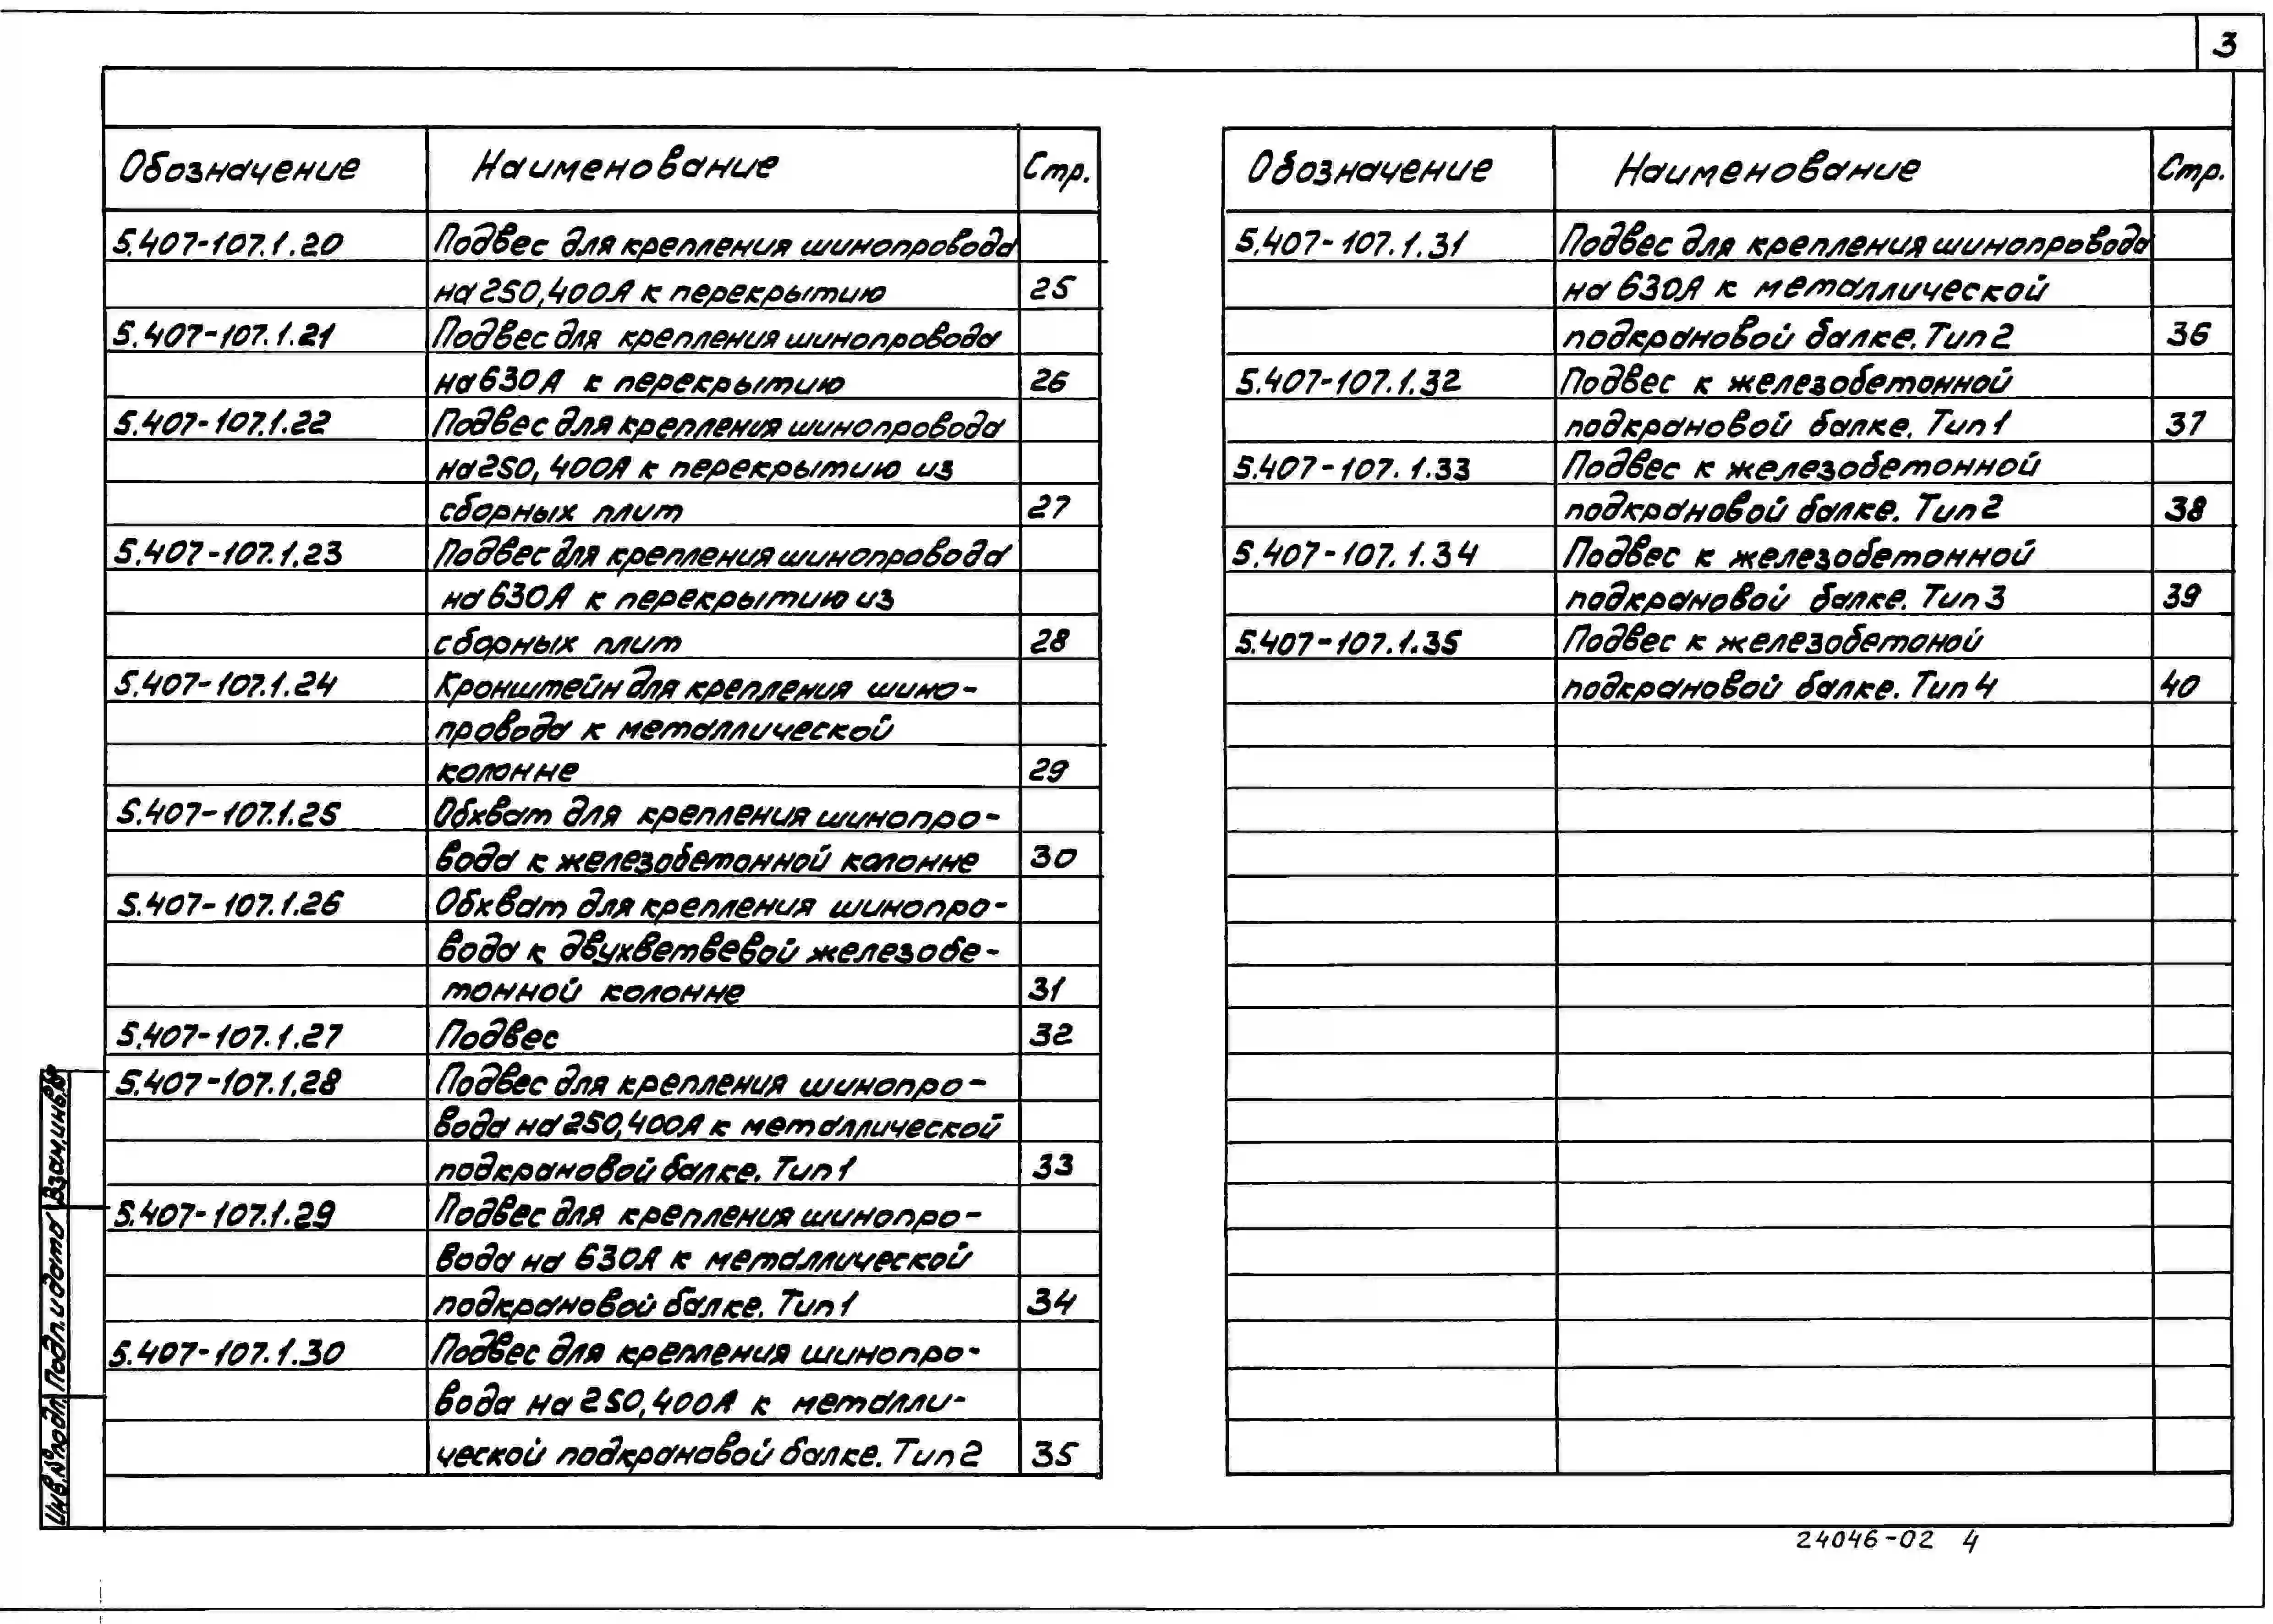 3
Обозначение Наименование Стр.
5.407-107.1.20 Подвес для крепления шинопровода
на 250,400А к перекрытию 25
5.407-107.1.21 Подвес для крепления шинопровода
на 630А к перекрытию 26
5.407-107.1.22 Подвес для крепления шинопровода
на 250, 400А к перекрытию из
сборных плит 27
5.407-107.1.23 Подвес для крепления шинопровода
на 630А к перекрытию из
сборных плит 28
5.407-107.1.24 Кронштейн для крепления шино-
провода к металлической
колонне 29
5.407-107.1.25 Обхват для крепления шинопро-
вода к железобетонной колонне 30
5.407-107.1.26 Обхват для крепления шинопро-
вода к двухветвевой железобе-
тонной колонне 31
5.407-107.1.27 Подвес 32
5.407-107.1.28 Подвес для крепления шинопро-
вода на 250,400А к металлической
подкрановой балке. Тип 1 33
5.407-107.1.29 Подвес для крепления шинопро-
вода на 630А к металлической
подкрановой балке. Тип 1 34
5.407-107.1.30 Подвес для крепления шинопро-
вода на 250,400А к металли-
ческой подкрановой балке. Тип 2 35
Обозначение Наименование Стр.
5.407-107.1.31 Подвес для крепления шинопровода
на 630А к металлической
подкрановой балке. Тип 2 36
5.407-107.1.32 Подвес к железобетонной
подкрановой балке. Тип 1 37
5.407-107.1.33 Подвес к железобетонной
подкрановой балке. Тип 2 38
5.407-107.1.34 Подвес к железобетонной
подкрановой балке. Тип 3 39
5.407-107.1.35 Подвес к железобетоной
подкрановой балке. Тип 4 40
Инв.№подл. Подп. и дата Взам.инв.№
24046-02 4